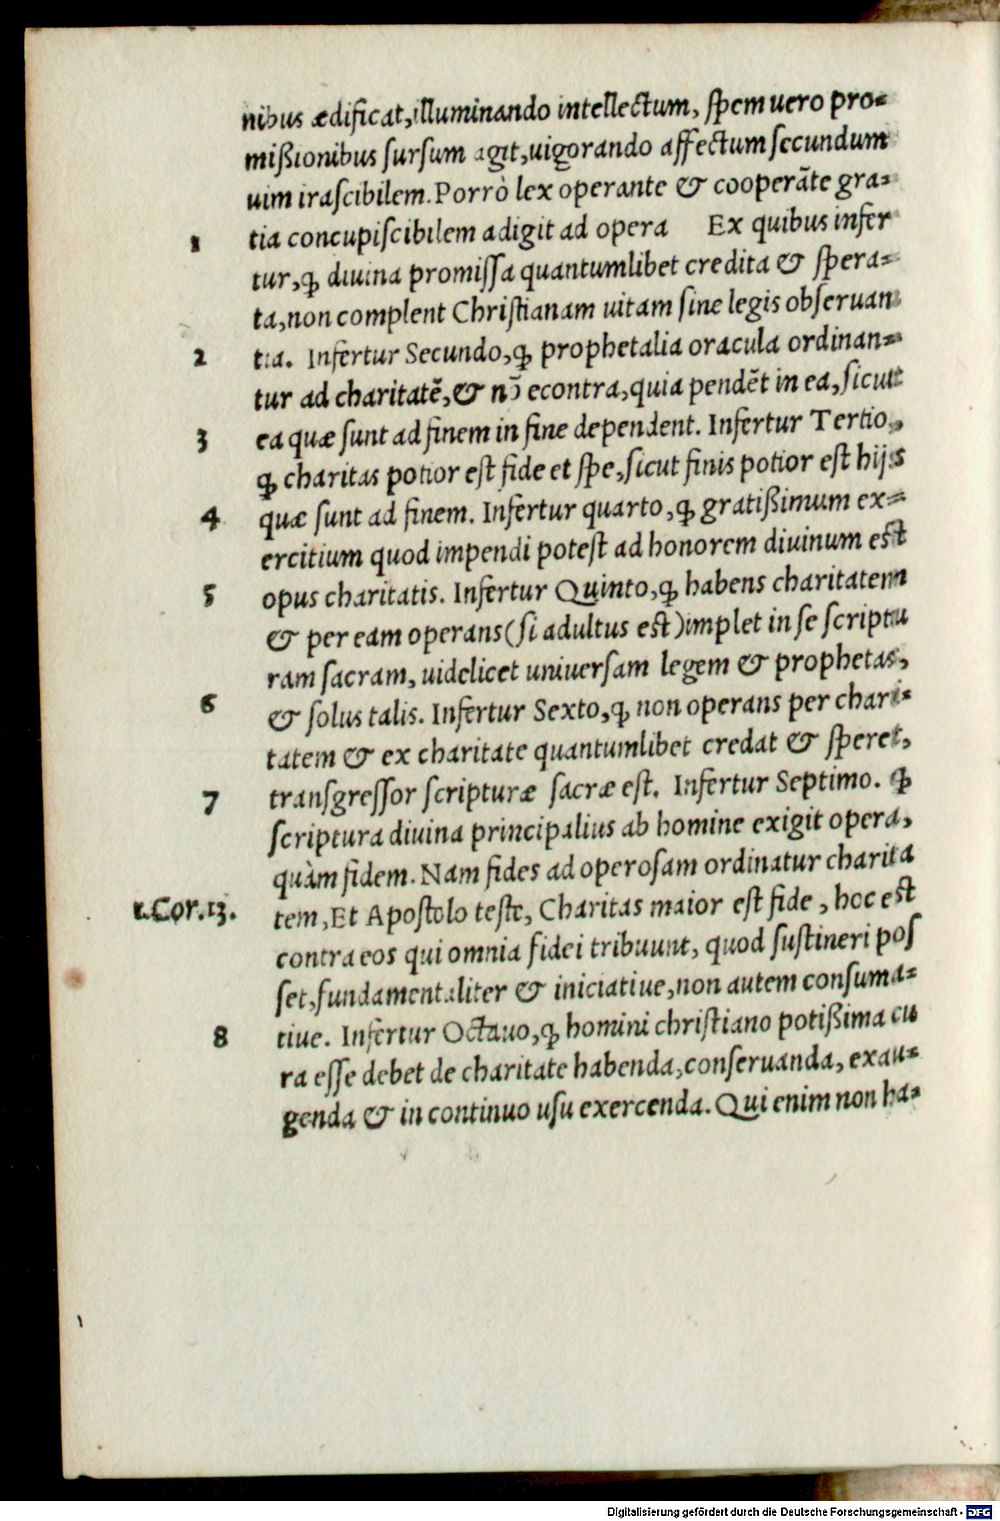 nibus ædificat,illuminando intellectum, ſpem uero pro-
mißionibus ſurſum agit,uigorando affectum ſecundum
uim iraſcibilem.Porrò lex operante & cooperāte gra-
1 tia concupiſcibilem adigit ad opera Ex quibus infer
tur,ꝙ diuina promiſſa quantumlibet credita & ſpera-
ta,non complent Chriſtianam uitam ſine legis obſeruan
2 tia. Infertur Secundo,ꝙ prophetalia oracula ordinan-
tur ad charitatē,& nō econtra,quia pendēt in ea,ſicut
3 ea quæ ſunt ad finem in fine dependent. Infertur Tertio,
ꝙ charitas potior eſt fide et ſpe,ſicut finis potior eſt hijs
4 quæ ſunt ad finem. Infertur quarto,ꝙ gratißimum ex-
ercitium quod impendi poteſt ad honorem diuinum eſt
5 opus charitatis. Infertur Quinto,ꝙ habens charitatem
& per eam operans(ſi adultus eſt)implet in ſe ſcriptu
ram ſacram, uidelicet uniuerſam legem & prophetas,
6 & ſolus talis. Infertur Sexto,ꝙ non operans per chari-
tatem & ex charitate quantumlibet credat & ſperet,
7 tranſgreſſor ſcripturæ ſacræ eſt. Infertur Septimo. ꝙ
ſcriptura diuina principalius ab homine exigit opera,
quàm fidem. Nam fides ad operoſam ordinatur charita
1.Cor.13. tem,Et Apoſtolo teſte, Charitas maior eſt fide , hoc eſt
contra eos qui omnia fidei tribuunt, quod ſuſtineri poſ
ſet,fundamentaliter & iniciatiue,non autem conſuma-
8 tiue. Infertur Octauo,ꝙ homini chriſtiano potißima cu
ra eſſe debet de charitate habenda,conſeruanda, exau-
genda & in continuo uſu exercenda. Qui enim non ha-
Digitalisierung gefördert durch die Deutsche Forschungsgemeinschaft - DFG